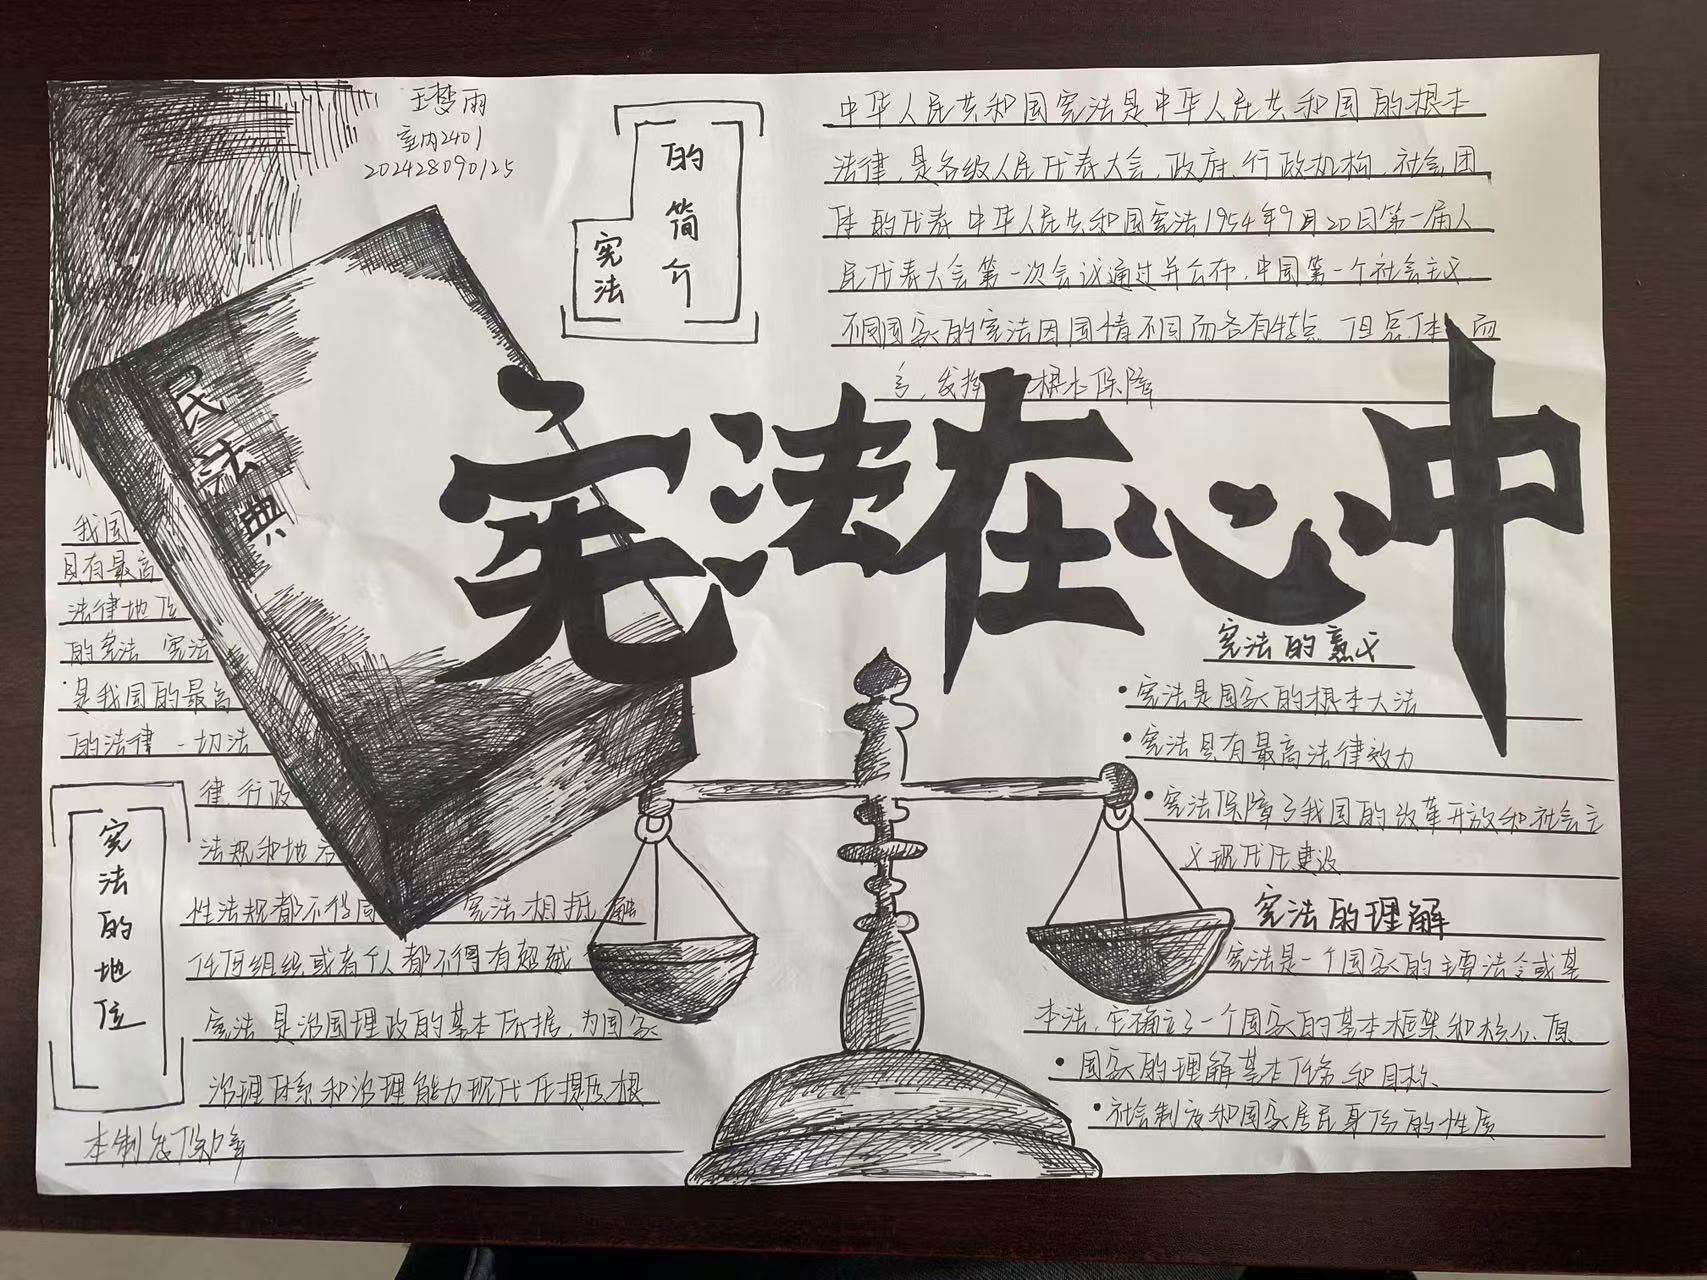 王梦雨
室内2401
202428090125
宪法
的简介
中华人民共和国宪法是中华人民共和国的根本
法律,是各级人民代表大会,政府、行政机构,社会团
体的代表 中华人民共和国宪法1954年9月20日第一届人
民代表大会第一次会议通过并公布,中国第一个社会主义
不同国家的宪法因国情不同而各有特点 但总体 而
言,发挥 根本保障
民法典
宪法在心中
我国
具有最高
法律地位
的宪法 宪法
是我国的最高
的法律 一切法
律,行政
法规和地方
性法规都不得同 宪法相抵触
任何组织或者个人都不得有超越
宪法是治国理政的基本依据,为国家
治理体系和治理能力现代化提供根
本制度保障
宪法的地位
宪法的意义
·宪法是国家的根本大法
·宪法具有最高法律效力
·宪法保障了我国的改革开放和社会主
义现代化建设
宪法的理解
宪法是一个国家的主要法令或基
本法,它确立了一个国家的基本框架和核心原
·国家的理解基本任务和目标
·社会制度和国家居民身份的性质